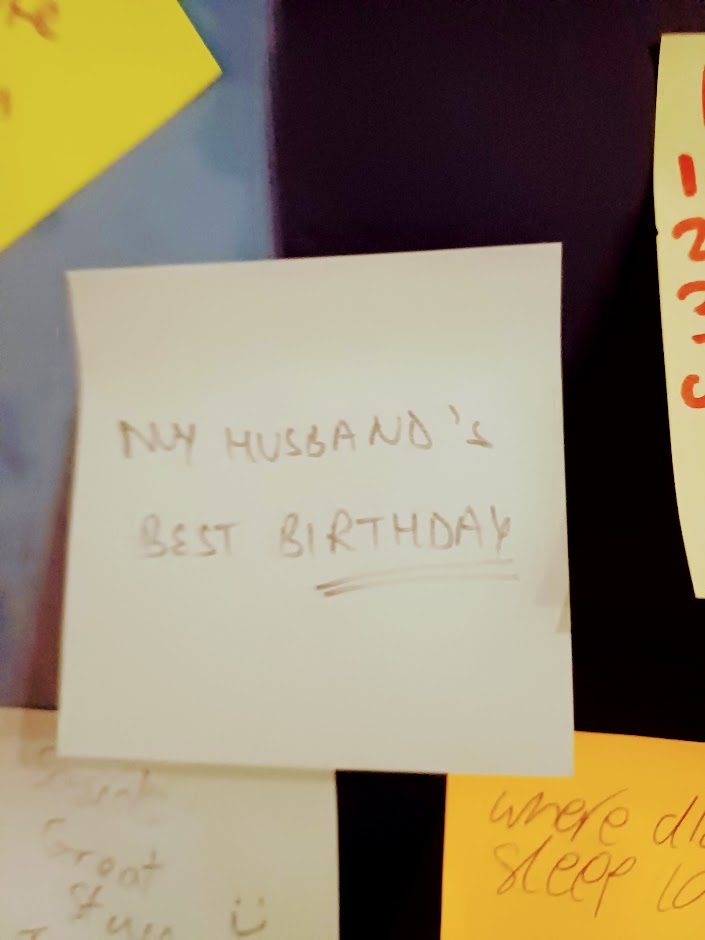 1
2
3
MY HUSBAND'S
BEST BIRTHDAY
Great
where
sleep